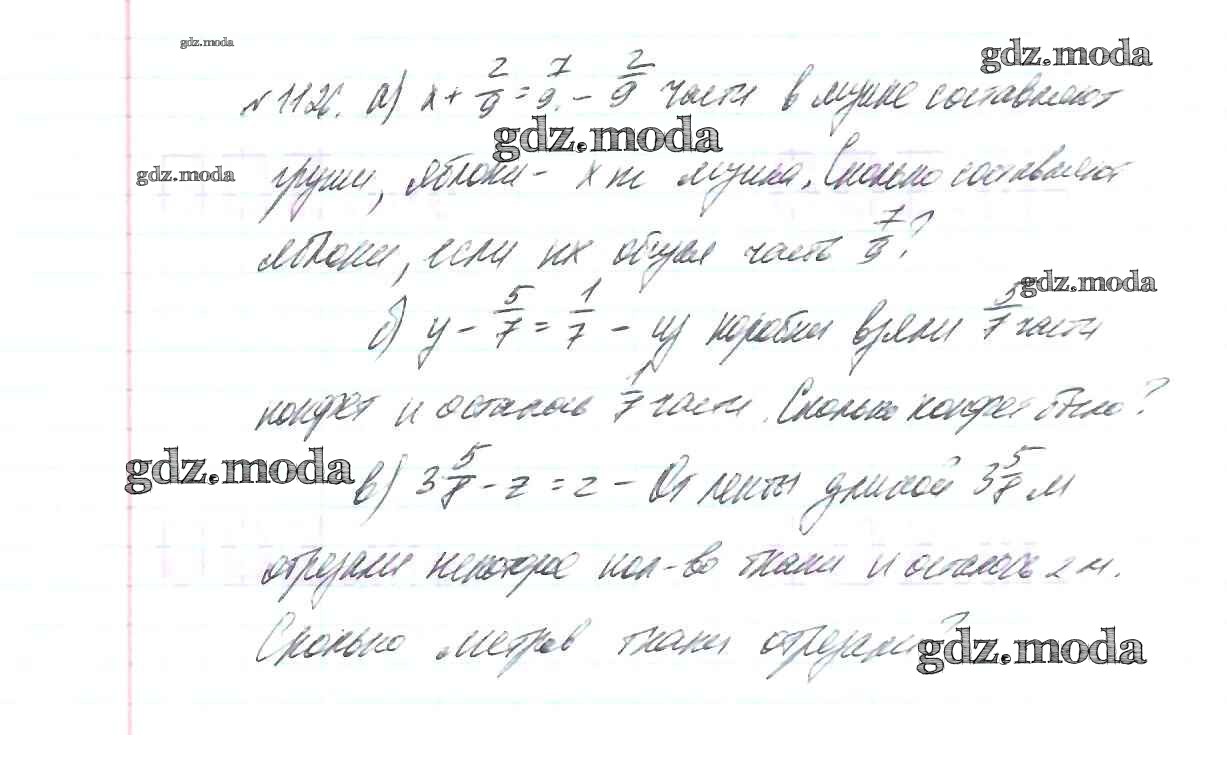 gdz.moda
gdz.moda
№1126. а) x + 2/9 = 7/9. - 2/9 части в мушке составляют
gdz.moda
gdz.moda
груши, яблоки - x т Сколько составляют
яблоки, если их общая часть 7/9?
gdz.moda
б) y - 5/7 = 1/7 - из коробки взяли 5/7 части
конфет и осталось 1/7 части. Сколько конфет было?
gdz.moda
в) 3 5/8 - z = 2 - От ленты длиной 3 5/8 м
отрезали некоторое кол-во ткани и осталось 2 м.
Сколько метров ткани отрезали?
gdz.moda